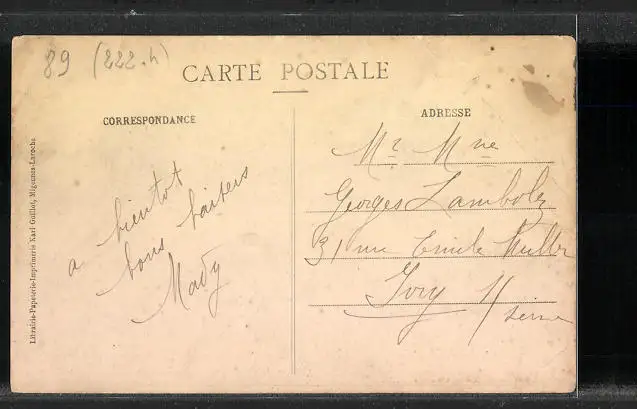 89 (222.h)
CARTE POSTALE
CORRESPONDANCE
ADRESSE
a bientot
bons baisers
Mady
Mr Mme
Georges Lambolez
31 rue Emile Muller
Ivry s/
seine
Librairie-Papeterie-Imprimerie Karl Guillot, Migennes-Laroche